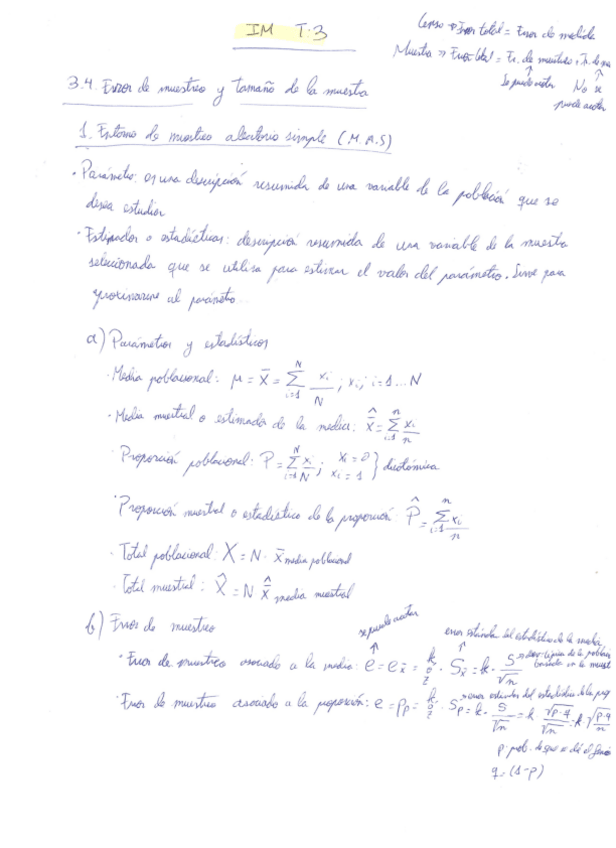 IM T:3
Censo → Error total = Error de medida
Muestra → Error total = Er. de muestreo + Er. de
Se puede acotar No se
puede acotar
3.4. Error de muestreo y tamaño de la muestra
1. Entorno de muestreo aleatorio simple (M.A.S)
· Parámetro: es una descripción resumida de una variable de la población que se
desea estudiar
· Estimador o estadísticos: descripción resumida de una variable de la muestra
seleccionada que se utiliza para estimar el valor del parámetro. Sirve para
aproximarme al parámetro
a) Parámetros y estadísticos
· Media poblacional: μ = X̄ = Σ_{i=1}^{N} xi/N ; xi; i=1...N
· Media muestral o estimada de la media: x̄̂ = Σ_{i=1}^{n} xi/n
· Proporción poblacional: P = Σ_{i=1}^{N} xi/N ; xi=0 xi=1 } dicotómica
· Proporción muestral o estadístico de la proporción: P̂ = Σ_{i=1}^{n} xi/n
· Total poblacional: X = N · x̄ media poblacional
· Total muestral: X̂ = N x̄̂ media muestral
b) Error de muestreo
se puede acotar
error estándar del estadístico de la media
· Error de muestreo asociado a la media: e = e_x̄ = k o z · S_x̄ = k · S/√n
desv. típica de la població
basada en la muest
· Error de muestreo asociado a la proporción: e = p_p = k o z · S_p = k · S/√n = k · √p·q/√n = k √p·q/n
error estándar del estadístico de la prop
p: prob. de que se dé el fenó
q = (1-p)